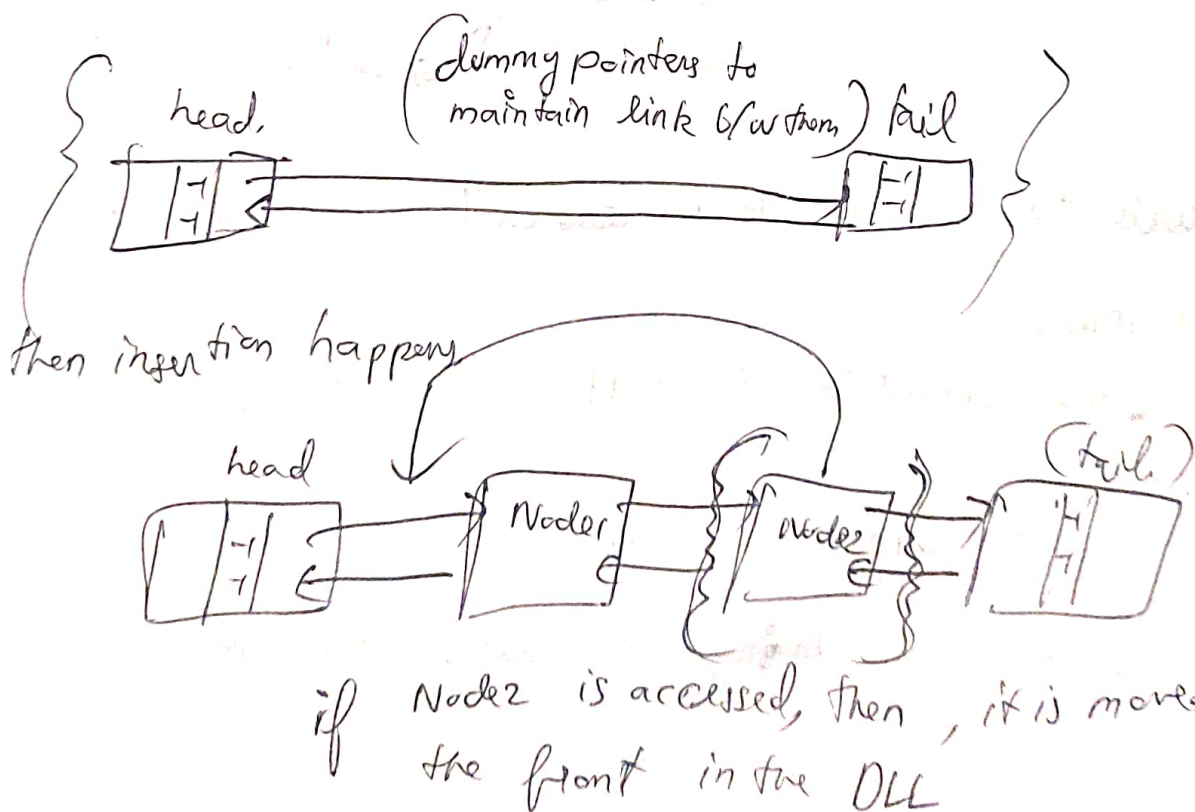 (dummy pointers to
head, maintain link b/w them) tail
-1 -1
-1 -1
then insertion happens
head (tail)
-1 Node1 Node2 -1
-1 -1
if Node2 is accessed, then, it is move
the front in the DLL